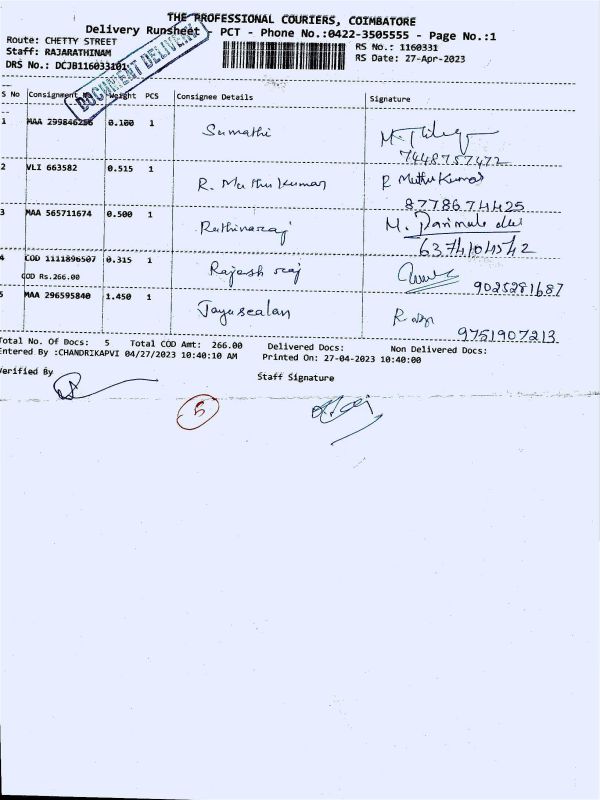 THE PROFESSIONAL COURIERS, COIMBATORE
Delivery Runsheet - PCT - Phone No.:0422-3505555 - Page No.:1
Route: CHETTY STREET
RS No.: 1160331
Staff: RAJARATHINAM
RS Date: 27-Apr-2023
DRS No.: DCJB116033101
DOCUMENT DELIVERY
S No Consignment Weight PCS Consignee Details Signature
1 MAA 299846256 0.100 1 Sumathi
7448757472
2 VLI 663582 0.515 1 R. Muthu kumar R Muthu Kumar
8778674425
3 MAA 565711674 0.500 1 Rathinaraj M.
6374104542
4 COD 1111896507 0.315 1 Rajesh raj
COD Rs.266.00
9025281687
5 MAA 296595840 1.450 1 Jayaseelan
9751907213
Total No. Of Docs: 5 Total COD Amt: 266.00 Delivered Docs: Non Delivered Docs:
Entered By :CHANDRIKAPVI 04/27/2023 10:40:10 AM Printed On: 27-04-2023 10:40:00
Verified By
Staff Signature
5